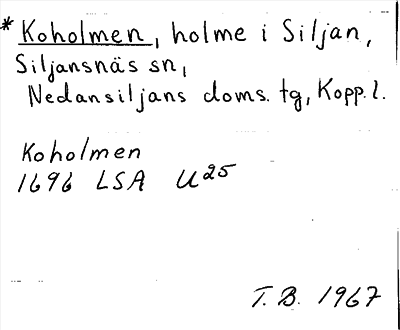 * Koholmen, holme i Siljan,
Siljansnäs sn,
Nedansiljans doms. tg, Kopp. l.
Koholmen
1696 LSA U25
T. B. 1967